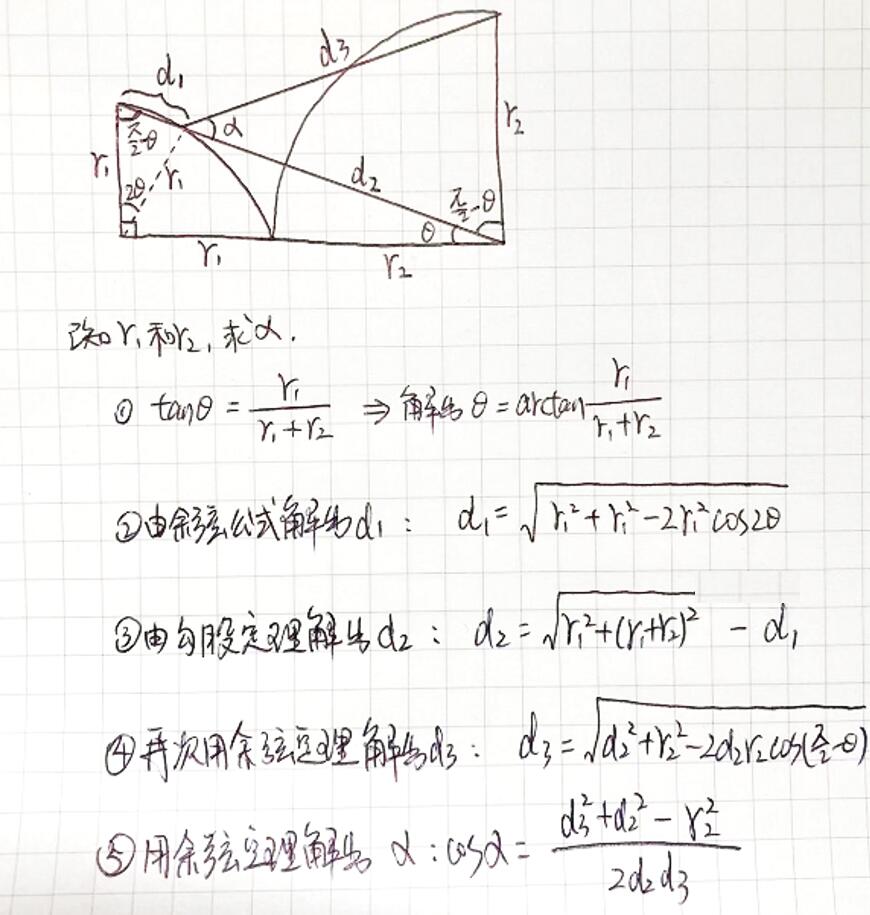 d₁
d₃
r₂
π/2-θ
α
r₁
r₁
2θ
d₂
π/2-θ
θ
r₁
r₂
已知r₁和r₂,求α.
① tanθ = r₁/(r₁+r₂) ⇒ 解出θ = arctan r₁/(r₁+r₂)
②由余弦公式解出d₁: d₁=√(r₁²+r₁²-2r₁²cos2θ)
③由勾股定理解出d₂: d₂=√(r₁²+(r₁+r₂)²) - d₁
④再次用余弦定理解出d₃: d₃=√(d₂²+r₂²-2d₂r₂cos(π/2-θ))
⑤用余弦定理解出 α:cosα= (d₃²+d₂²-r₂²)/(2d₂d₃)